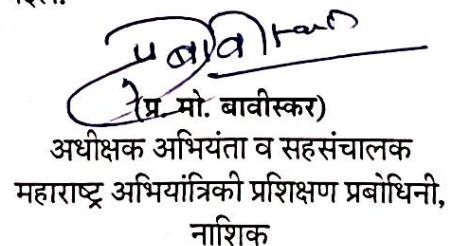 (प्र. मो. बावीस्कर)
अधीक्षक अभियंता व सहसंचालक
महाराष्ट्र अभियांत्रिकी प्रशिक्षण प्रबोधिनी,
नाशिक